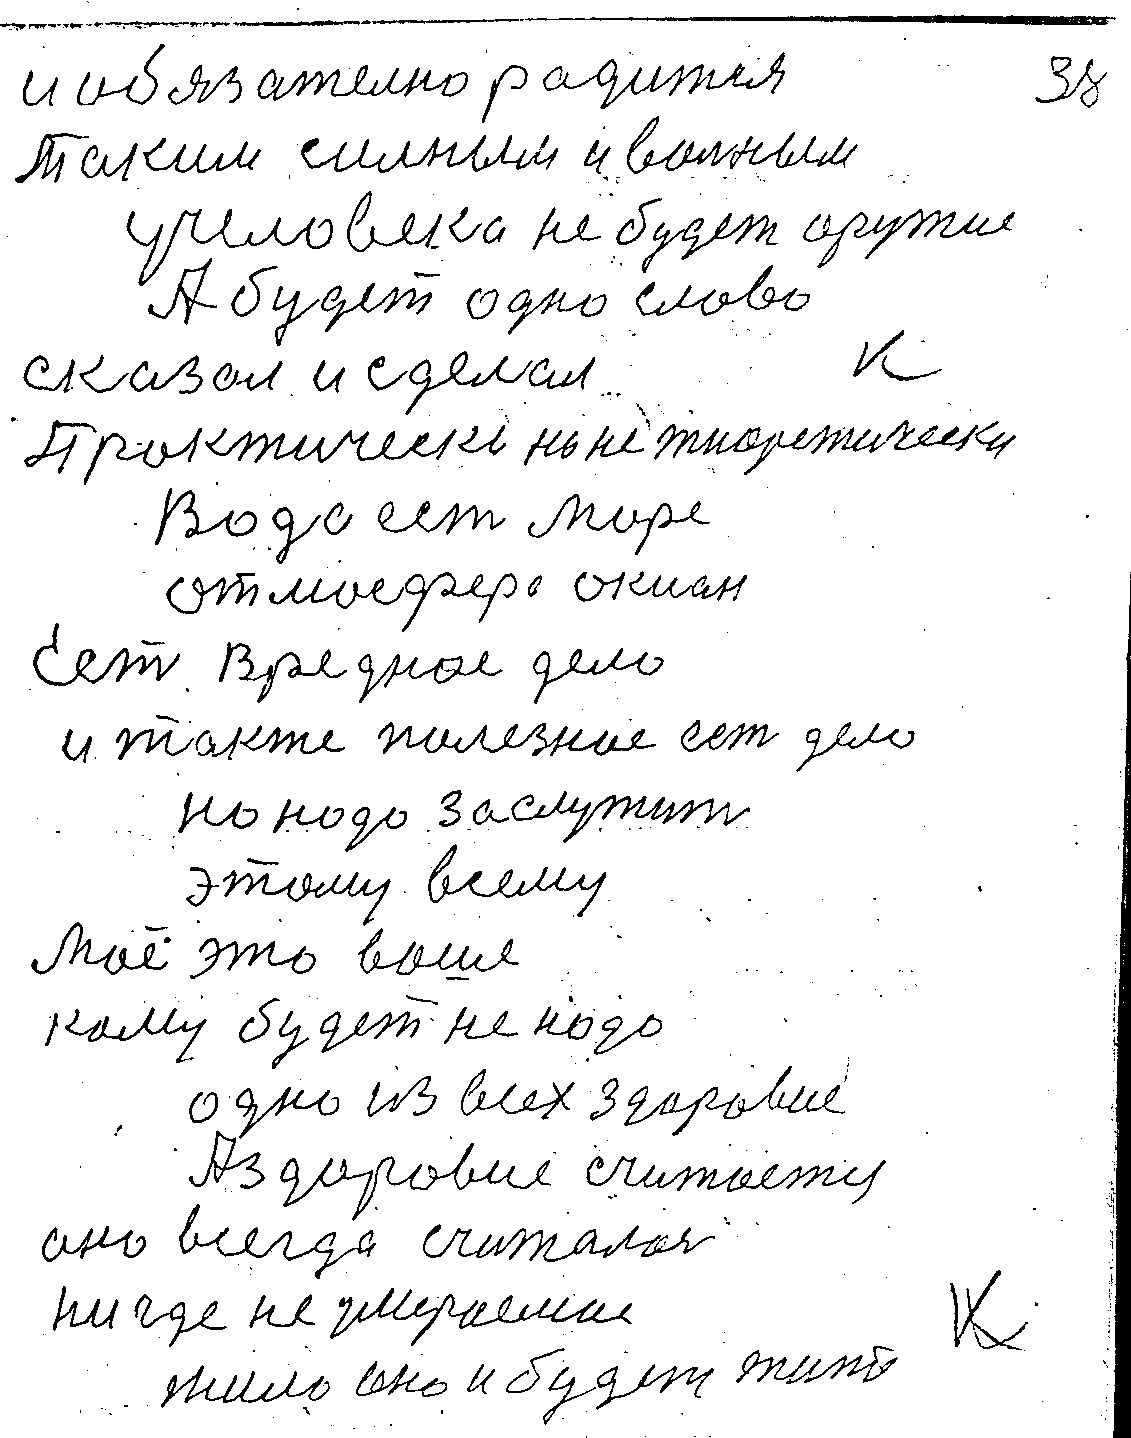 и обязателно радится 38
Таким силным и волным
учеловека не будет оружие
А будет одно слово
сказал и сделал К
Практически но не тиоретически
Вода ест море
атмосфера окиан
Ест вредное дело
и также полезное ест дело
но надо заслужит
этому всему
Моё это ваше
кому будет не надо
одно из всех здоровие
А здоровие считается
оно всегда считалос
нигде не умираемое
жило оно и будет жить К